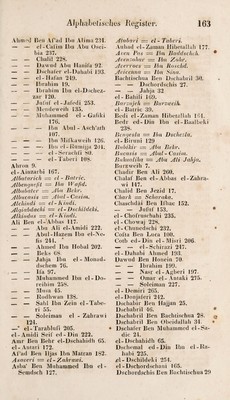 Alphabetisches Register. 163
Ahmed Ben Al'ad Ibn Alima 231.
— — el-Catim Ibn Abu Osei-
bia 237.
— — Chalil 228.
— — Dawud Abu Hanifa 92
— — Dschafer el-Dahabi 193.
— — el-Hafas 249.
— — Ibrahim 19.
— — Ibrahim Ibn el-Dschez-
zar 120.
— — Jusuf el-Jafedi 253.
— — Menleweih 135.
— — Muhammed el-Gafiki
176.
— — Ibn Abul-Asch'ath
107.
— — Ibn Miskaweih 126.
— — Ibn el-Rumija 241.
— — el-Serachsi 80.
— — el-Taberi 108.
Ahron 9.
el-Ainzarbi 167.
Albatarich = el-Batric.
Albenguefit = Ibn Wafid.
Albubater = Abu Bekr.
Albucasis = Abul-Casim.
Alchindi = el-Kindi.
Algizbdachi = el-Dschildeki.
Alkindus = el-Kindi.
Ali Ben el-Abbas 117.
— — Abu Ali el-Amidi 222.
— — Abul-Hazem Ibn el-Ne-
fis 244.
— — Ahmed Ibn Hobal 202.
— — Beks 68
— — Jahja Ibn el-Moned-
dschem 76.
— — Isa 97.
— — Muhammed Ibn el-Do-
reihim 258.
— — Musa 45.
— — Rodhwan 138.
— — Sahl Ibn Zein el-Tabe-
ri 55.
— — Soleiman el-Zahrawi
124.
— el-Tarablusi 205.
el-Amidi Seif ed-Din 222.
Amr Ben Bekr el-Dschahidh 65.
el-Antari 172.
Al'ad Ben Iljas Ibn Matran 182.
Asacravi = el-Zahrawi.
Asba' Ben Mohammed Ibn el-
Semdseh 127.
Atabari = el-Taberi.
Auhad el-Zaman Hibetallah 177.
Aven Pas = Ibn Baddschch.
Avenzohar = Ibn Zohr.
Averroes = Ibn Roschd.
Avicenna = Ibn Sina.
Bachtischua Ben Dschabril 50.
— — Dschordschis 27.
— — Jahja 32
el-Bahili 169.
Barzujeh = Barzweih.
el-Batric 30.
Bedi el-Zaman Hibetallah 164.
Bedr ed-Din Ibn el-Baalbeki
238.
Bengesla = Ibn Dschezla.
el-Biruni 129
Bubikir = Abu Bekr.
Bucasis = Abul-Casim.
Buhualiha = Abu Ali Jahja.
Burzweih 7.
Chadir Ben Ali 260.
Chalaf Ben el-Abbas el-Zahra-
wi 147.
Chalid Ben Jezid 17.
Charck = Scharaka.
Chaschdki Ben Hbac 152.
el-Chatef 153.
el-Chofruschahi 235.
el-Chowaj 228.
el-Chunedschi 232.
Cofta Ben Luca 100.
Coth ed-Din el-Misri 206.
— — — el-Schirazi 247.
el-Dahabi Ahmed 193.
Dawud Ben Honein 70
— — Ibrahim 199.
— — Nasr el-Agberi 197.
— — Omar el-Antaki 275.
— — Soleiman 227.
el-Demiri 265.
el-Donjaferi 242.
Dschabir Ben Hajjan 25.
Dschabril 46.
Dschabril Ben Bachtischua 28.
Dschabril Ben Obeidallah 34.
Dschafer Ben Muhammed el-Sa-
dic 24.
el-Dschahidh 65.
Dschemal ed-Din Ibn el-Ra-
habi 225.
el-Dschildeki 254.
el-Dschordschani 165.
Dschordschis Ben Bachtischua 29